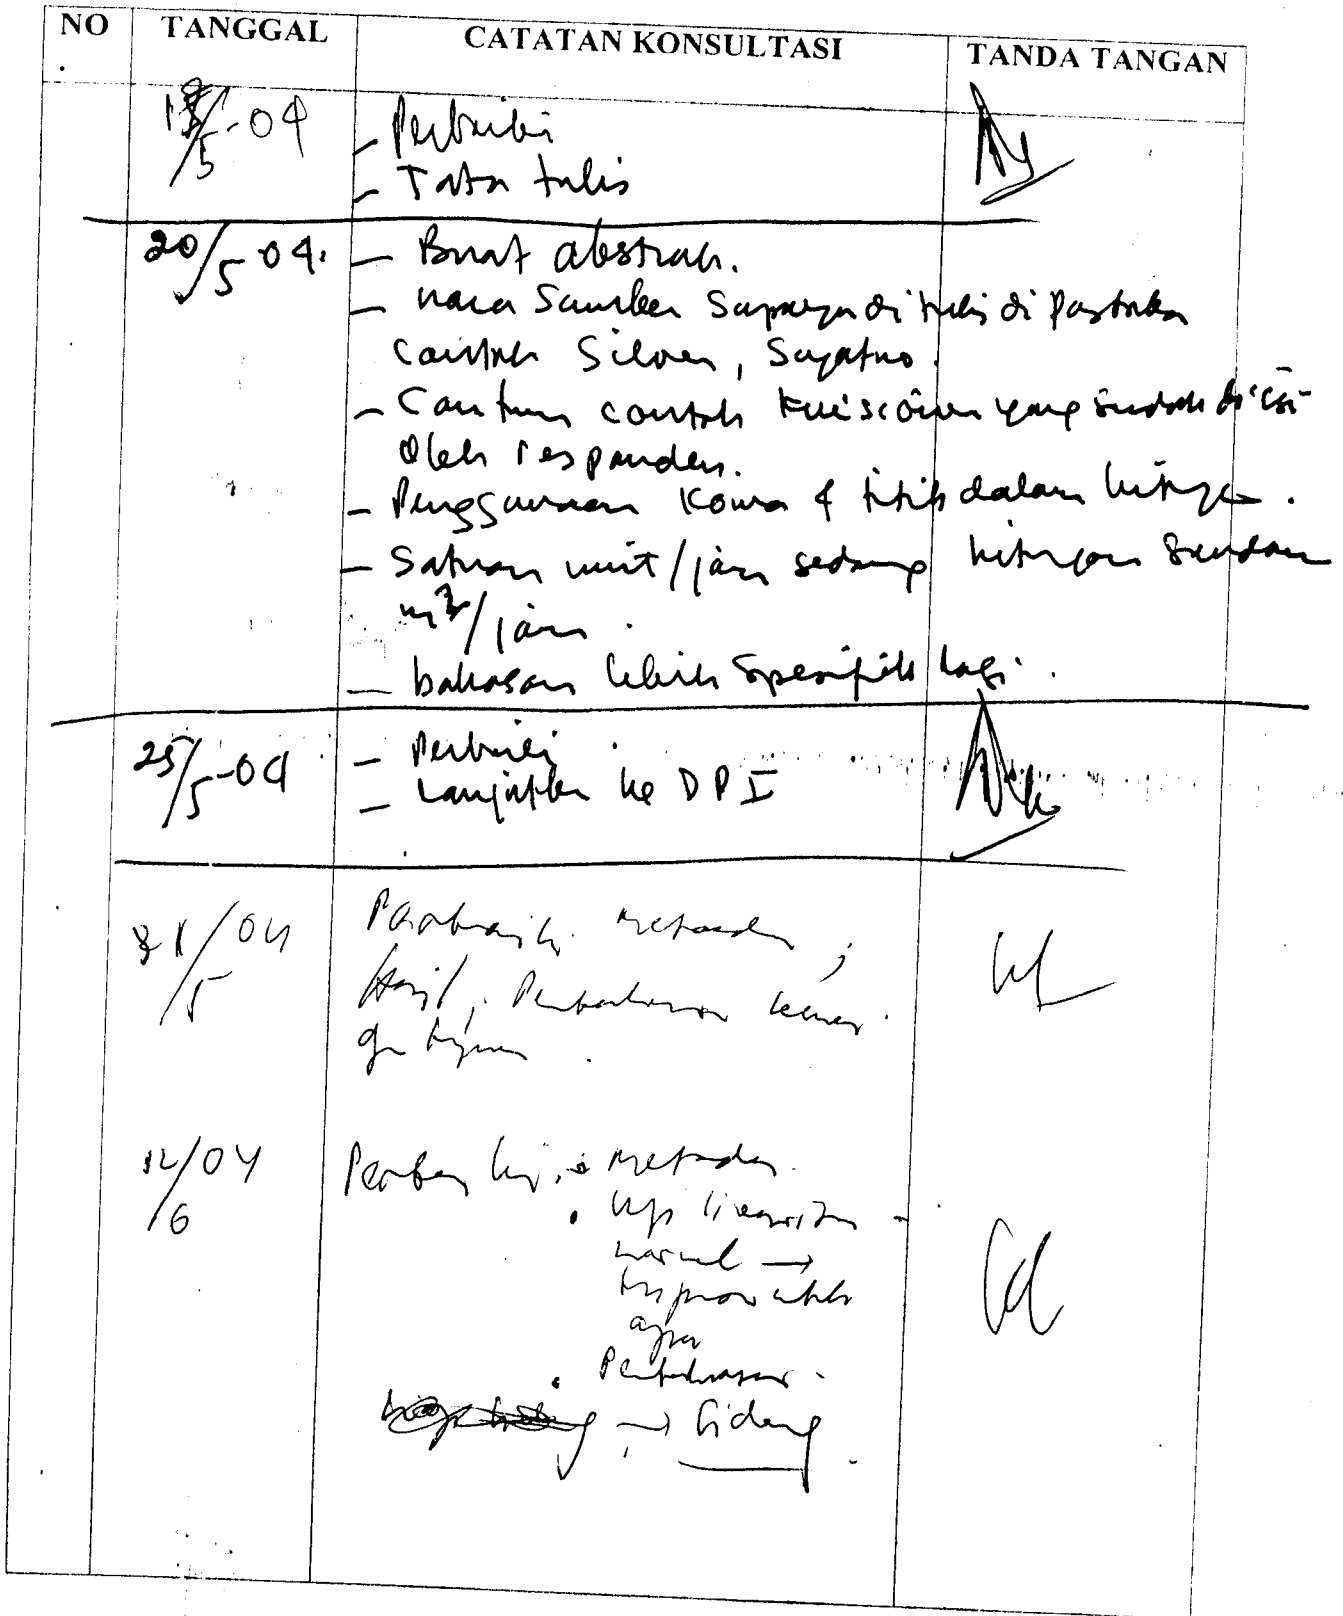 NO. TANGGAL CATATAN KONSULTASI TANDA TANGAN
/5-04 - Perbaiki
- Tata tulis
20/5 04. - Buat abstrak.
- nara Sumber Supaya di tulis di Pustaka
Contoh Silver, Suyatno.
- Cantum contoh kuiscioner yang sudah di isi
Oleh responden.
- Penggunaan Koma & titik dalam hitungan.
- Satuan unit/jam sedang hitungan
/jam.
- bahasan lebih Spesifik lagi.
25/5-04 - Perbaiki
- Lanjutkan ke DP I
31/5/04 Perbaiki metode ;
Hasil, Pembahasan
12/6/04 Perbaiki : • Metode.
• Uji
normal →
• Pembahasan.
→ Sidang.